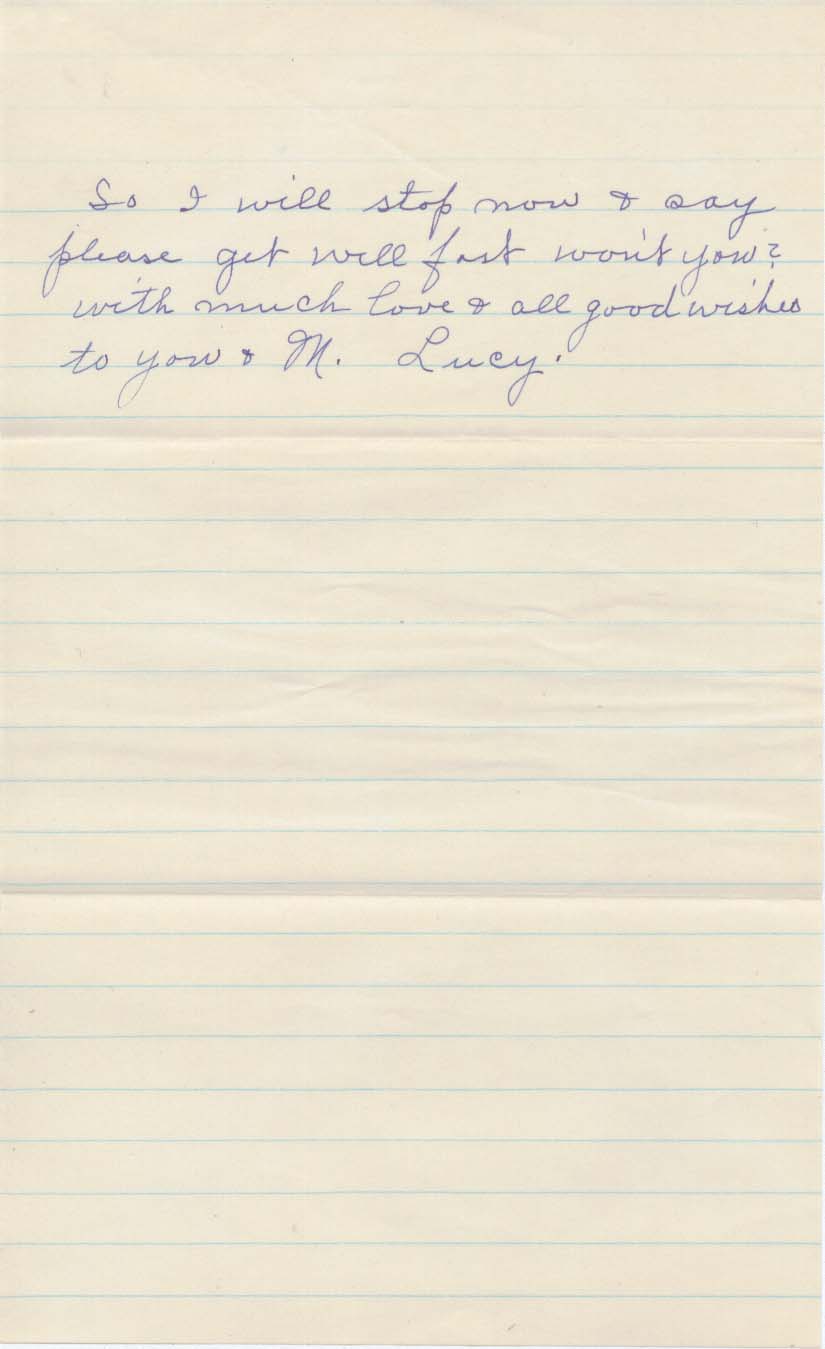 So I will stop now & say
please get well fast won't you?
with much love & all good wishes
to you & M. Lucy.